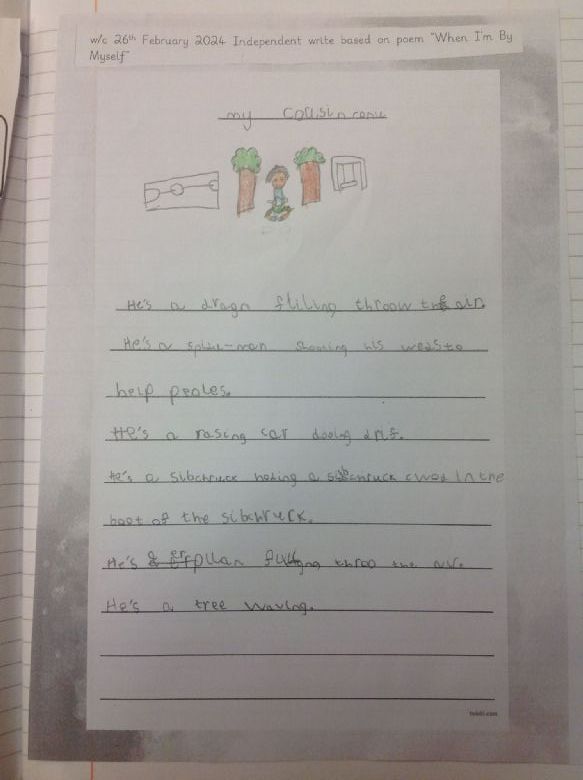 w/c 26th February 2024 Independent write based on poem "When I'm By
Myself"
my cousin
He's a dragn fliling throow the air.
He's a spider-man shooting his webs to
help peoles.
He's a rasing car dooing drif.
He's a sibchruck a sibchruck in the
boot of the sibchruck.
He's throo the air.
He's a tree waving.
twinkl.com